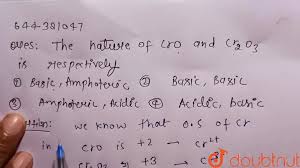 644381047
Ques: The nature of CrO and Cr2O3
is respectively
① Basic, Amphoteric ② Basic, Basic
③ Amphoteric, Acidic ④ Acidic, basic
we know that O.S of Cr
in CrO is +2 → Cr2+
Cr2O3 is +3 →
doubtnut